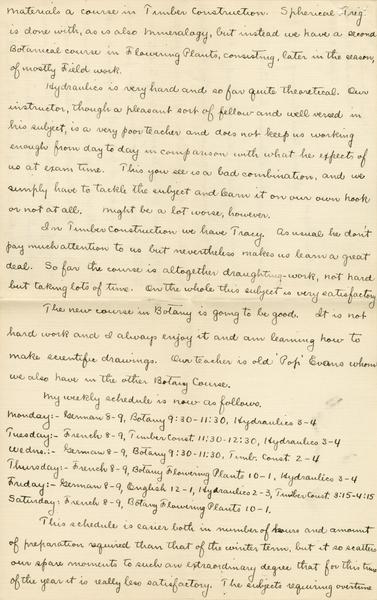 materials a course in Timber Construction. Spherical Trig.
is done with, as is also Mineralogy, but instead we have a second
Botanical course in Flowering Plants, consisting, later in the season,
of mostly Field work.
Hydraulics is very hard and so far quite theoretical. Our
instructor, though a pleasant sort of fellow and well versed in
his subject, is a very poor teacher and does not keep us working
enough from day to day in comparison with what he expects of
us at exam time. This you see is a bad combination, and we
simply have to tackle the subject and learn it on our own hook
or not at all. Might be a lot worse, however.
In Timber Construction we have Tracy. As usual he don't
pay much attention to us but nevertheless makes us learn a great
deal. So far the course is altogether draughting-work, not hard
but taking lots of time. On the whole this subject is very satisfactory
The new course in Botany is going to be good. It is not
hard work and I always enjoy it and am learning how to
make scientific drawings. Our teacher is old 'Pop' Evans whom
we also have in the other Botany Course.
My weekly schedule is now as follows.
Monday:- German 8-9, Botany 9:30-11:30, Hydraulics 3-4
Tuesday:- French 8-9, Timber Const 11:30-12:30, Hydraulics 3-4
Wedns:- German 8-9, Botany 9:30-11:30, Timb. Const. 2-4
Thursday:- French 8-9, Botany Flowering Plants 10-1, Hydraulics 3-4
Friday:- German 8-9, English 12-1, Hydraulics 2-3, Timber Const 3:15-4:15
Saturday: French 8-9, Botany Flowering Plants 10-1.
This schedule is easier both in number of hours and amount
of preparation required than that of the winter term, but it so scatters
our spare moments to such an extraordinary degree that for this time
of the year it is really less satisfactory. The subjects requiring overtime